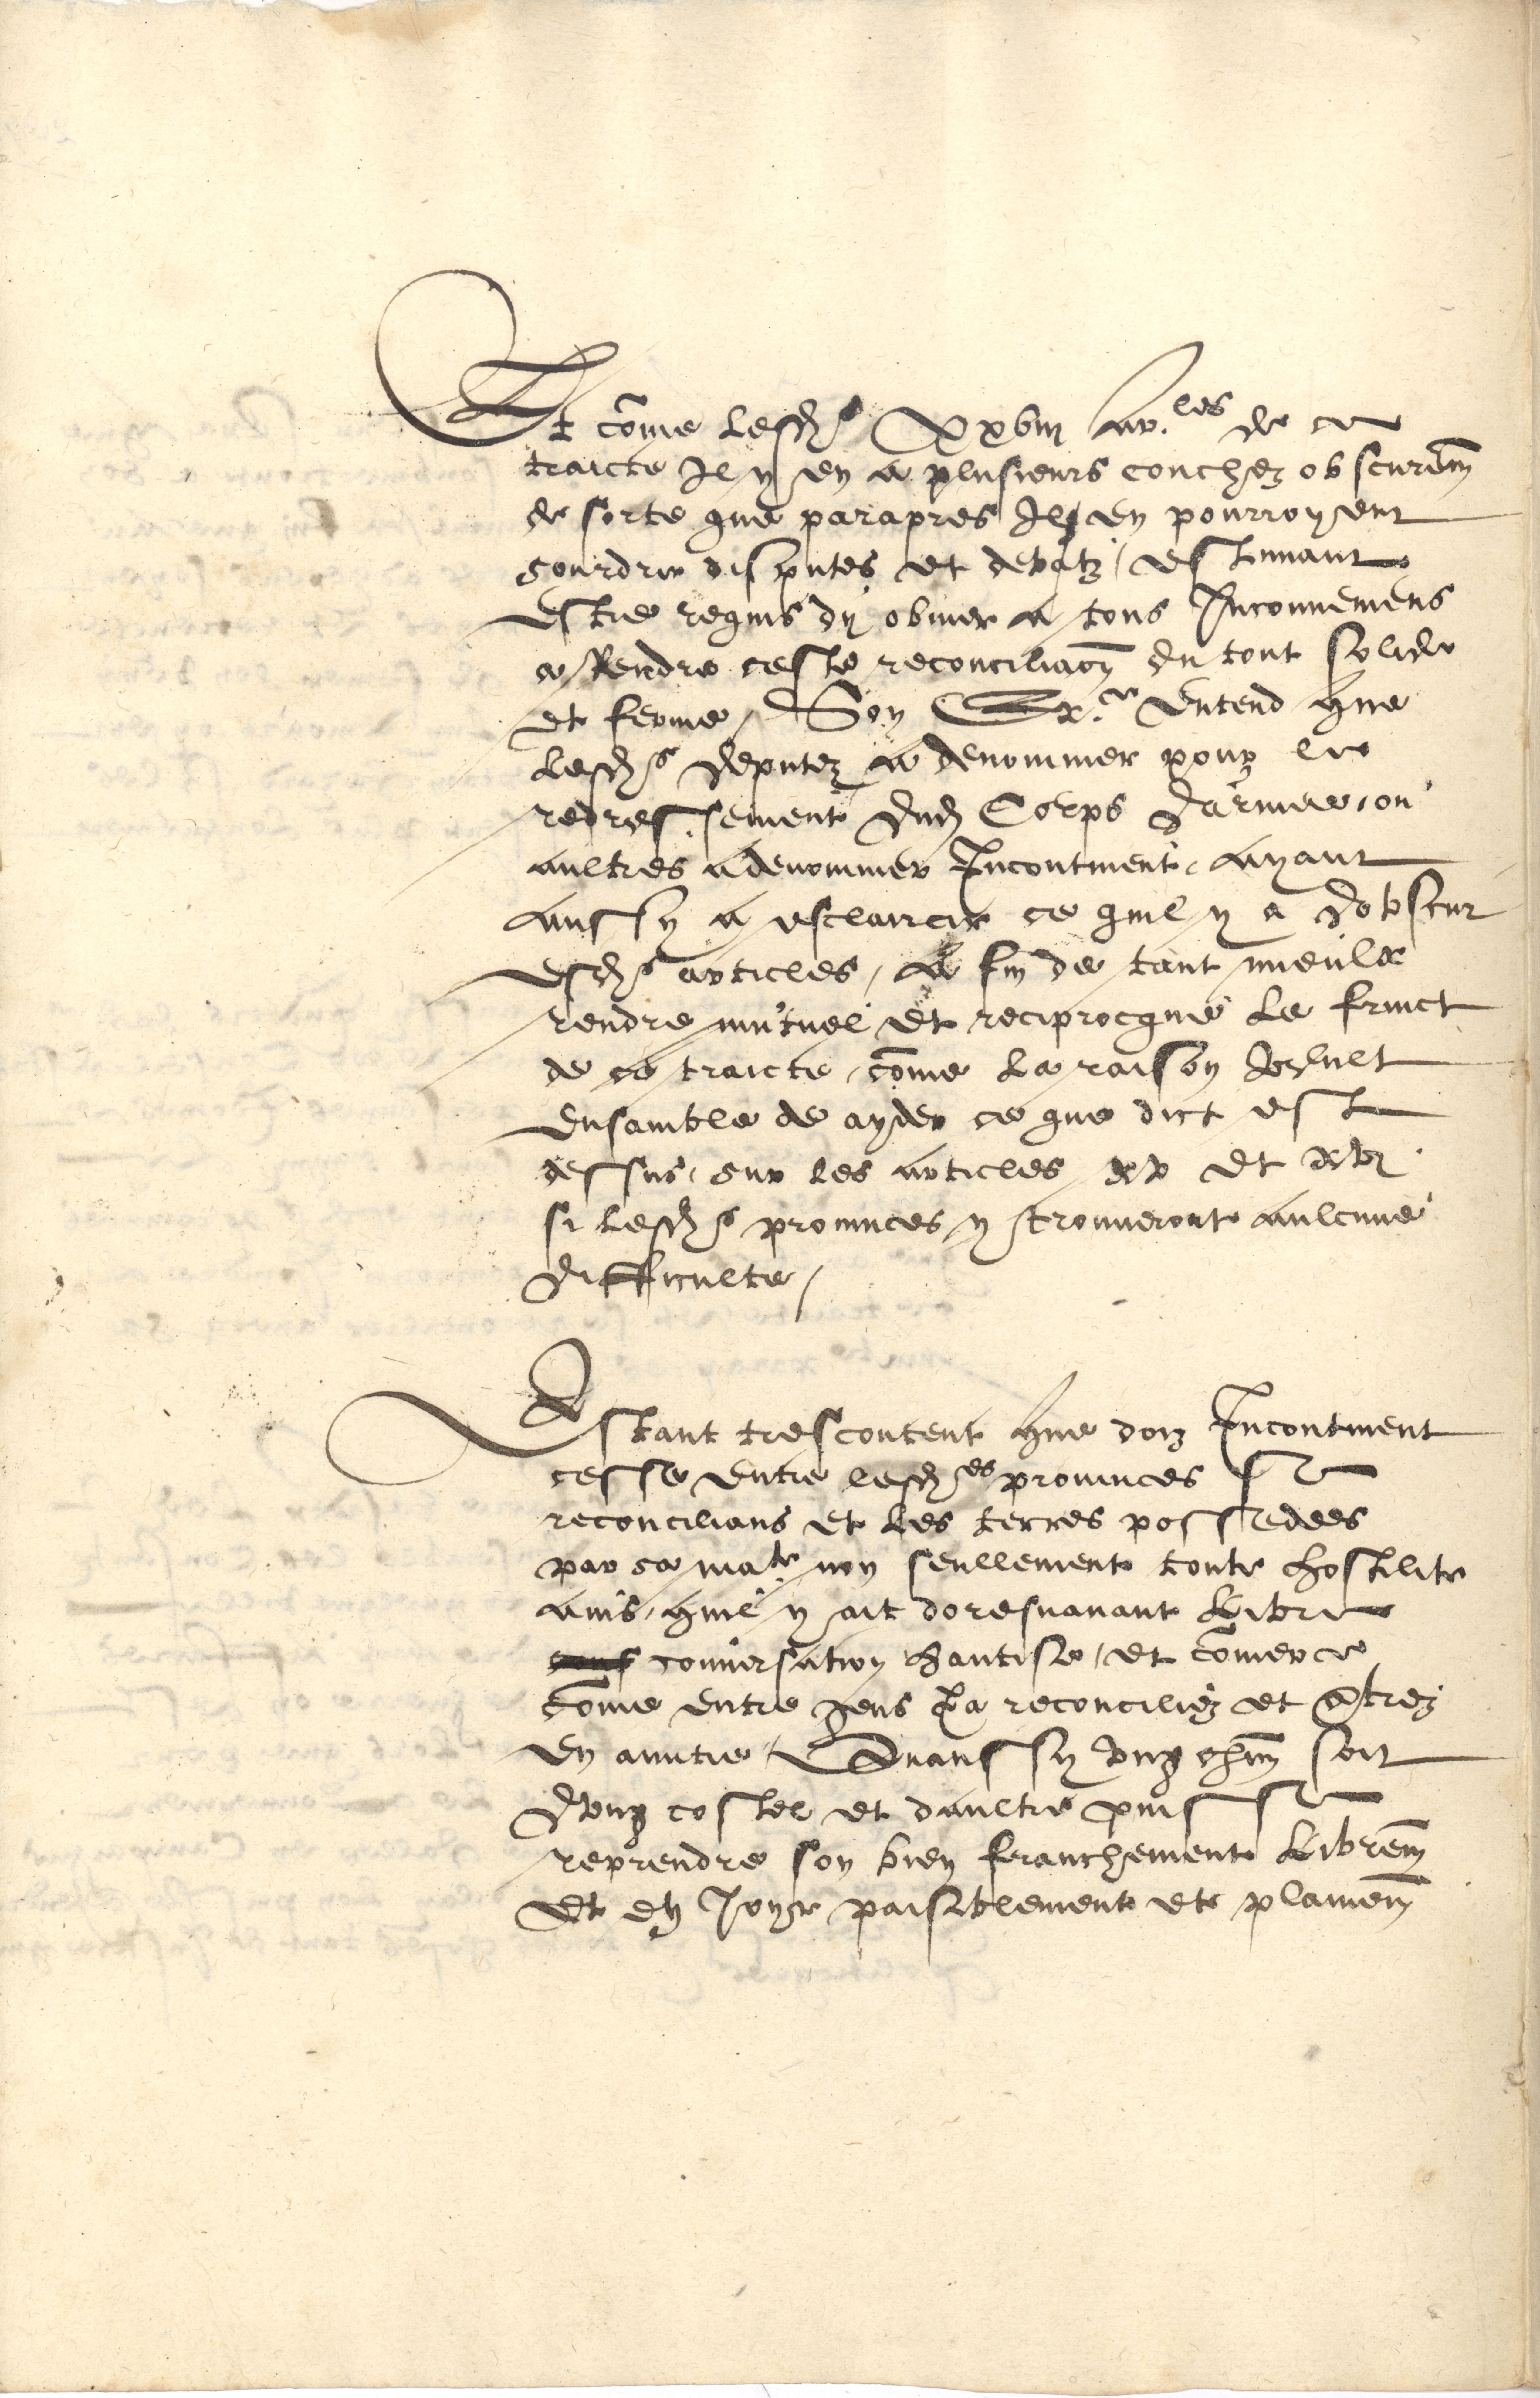 Et come lesd.s xxviij ar.les de ce
traicte Il y en a plusieurs couchez obscurem
de sorte que parapres Ilz en pourroyent
sourdre disputes et debatz, estimant
estre requis dy obvier a tous Inconveniens
a Rendre ceste reconciliaon du tout solide
et ferme, Son Ex.e Entend que
lesd.s deputez a denommer pour le
redressement dud Corps darmee, ou
aultres a denommer Incontinent, ayant
aussy a esclaircir ce quil y a dobscur
esd.s articles, A fin de tant mieulx
rendre mutuel et reciprocque le fruict
de ce traicte, come la raison veult
Ensamble de ayder ce que dict est
dessus, sur les articles xv et xvj
si lesd.s provinces y trouveront aulcune
difficulte,
Estant trescontent que doiz Incontinent
cesse entre lesd.es provinces se
reconcilians et les terres possedees
par sa ma.te non seullement toute hostilite
ains, quil y ait doresnavant libre
conversation hantise, et comerce
come entre gens ja reconciliez et
en amitie, Quaussy ung chun soit
dung costel et daultre puisse
reprendre son bien franchement librem
et en Joyr paisiblement et plainem